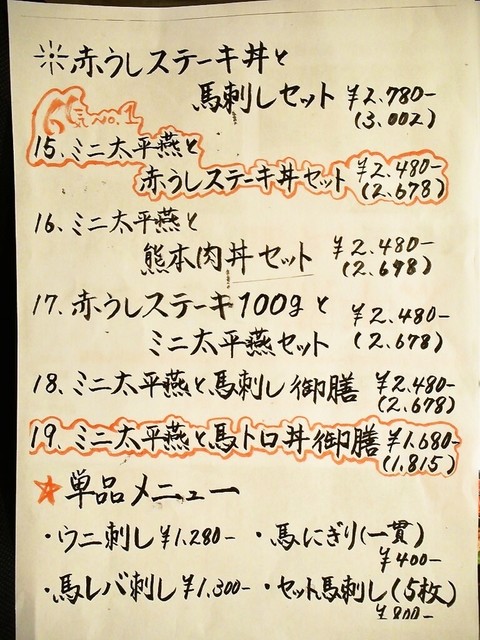 ※赤うしステーキ丼と
馬刺しセット ¥2,780-
(3,002)
人気No.1
15、ミニ太平燕と
赤うしステーキ丼セット ¥2,480-
(2,678)
16、ミニ太平燕と
熊本肉丼セット ¥2,480-
(2,678)
17、赤うしステーキ100gと ¥2,480-
ミニ太平燕セット (2,678)
18、ミニ太平燕と馬刺し御膳 ¥2,480-
(2,678)
19、ミニ太平燕と馬トロ丼御膳 ¥1,680-
(1,815)
★単品メニュー
・ウニ刺し¥1,280- ・馬にぎり(一貫)
¥400-
・馬レバ刺し¥1,300- ・セット馬刺し(5枚)
¥800-